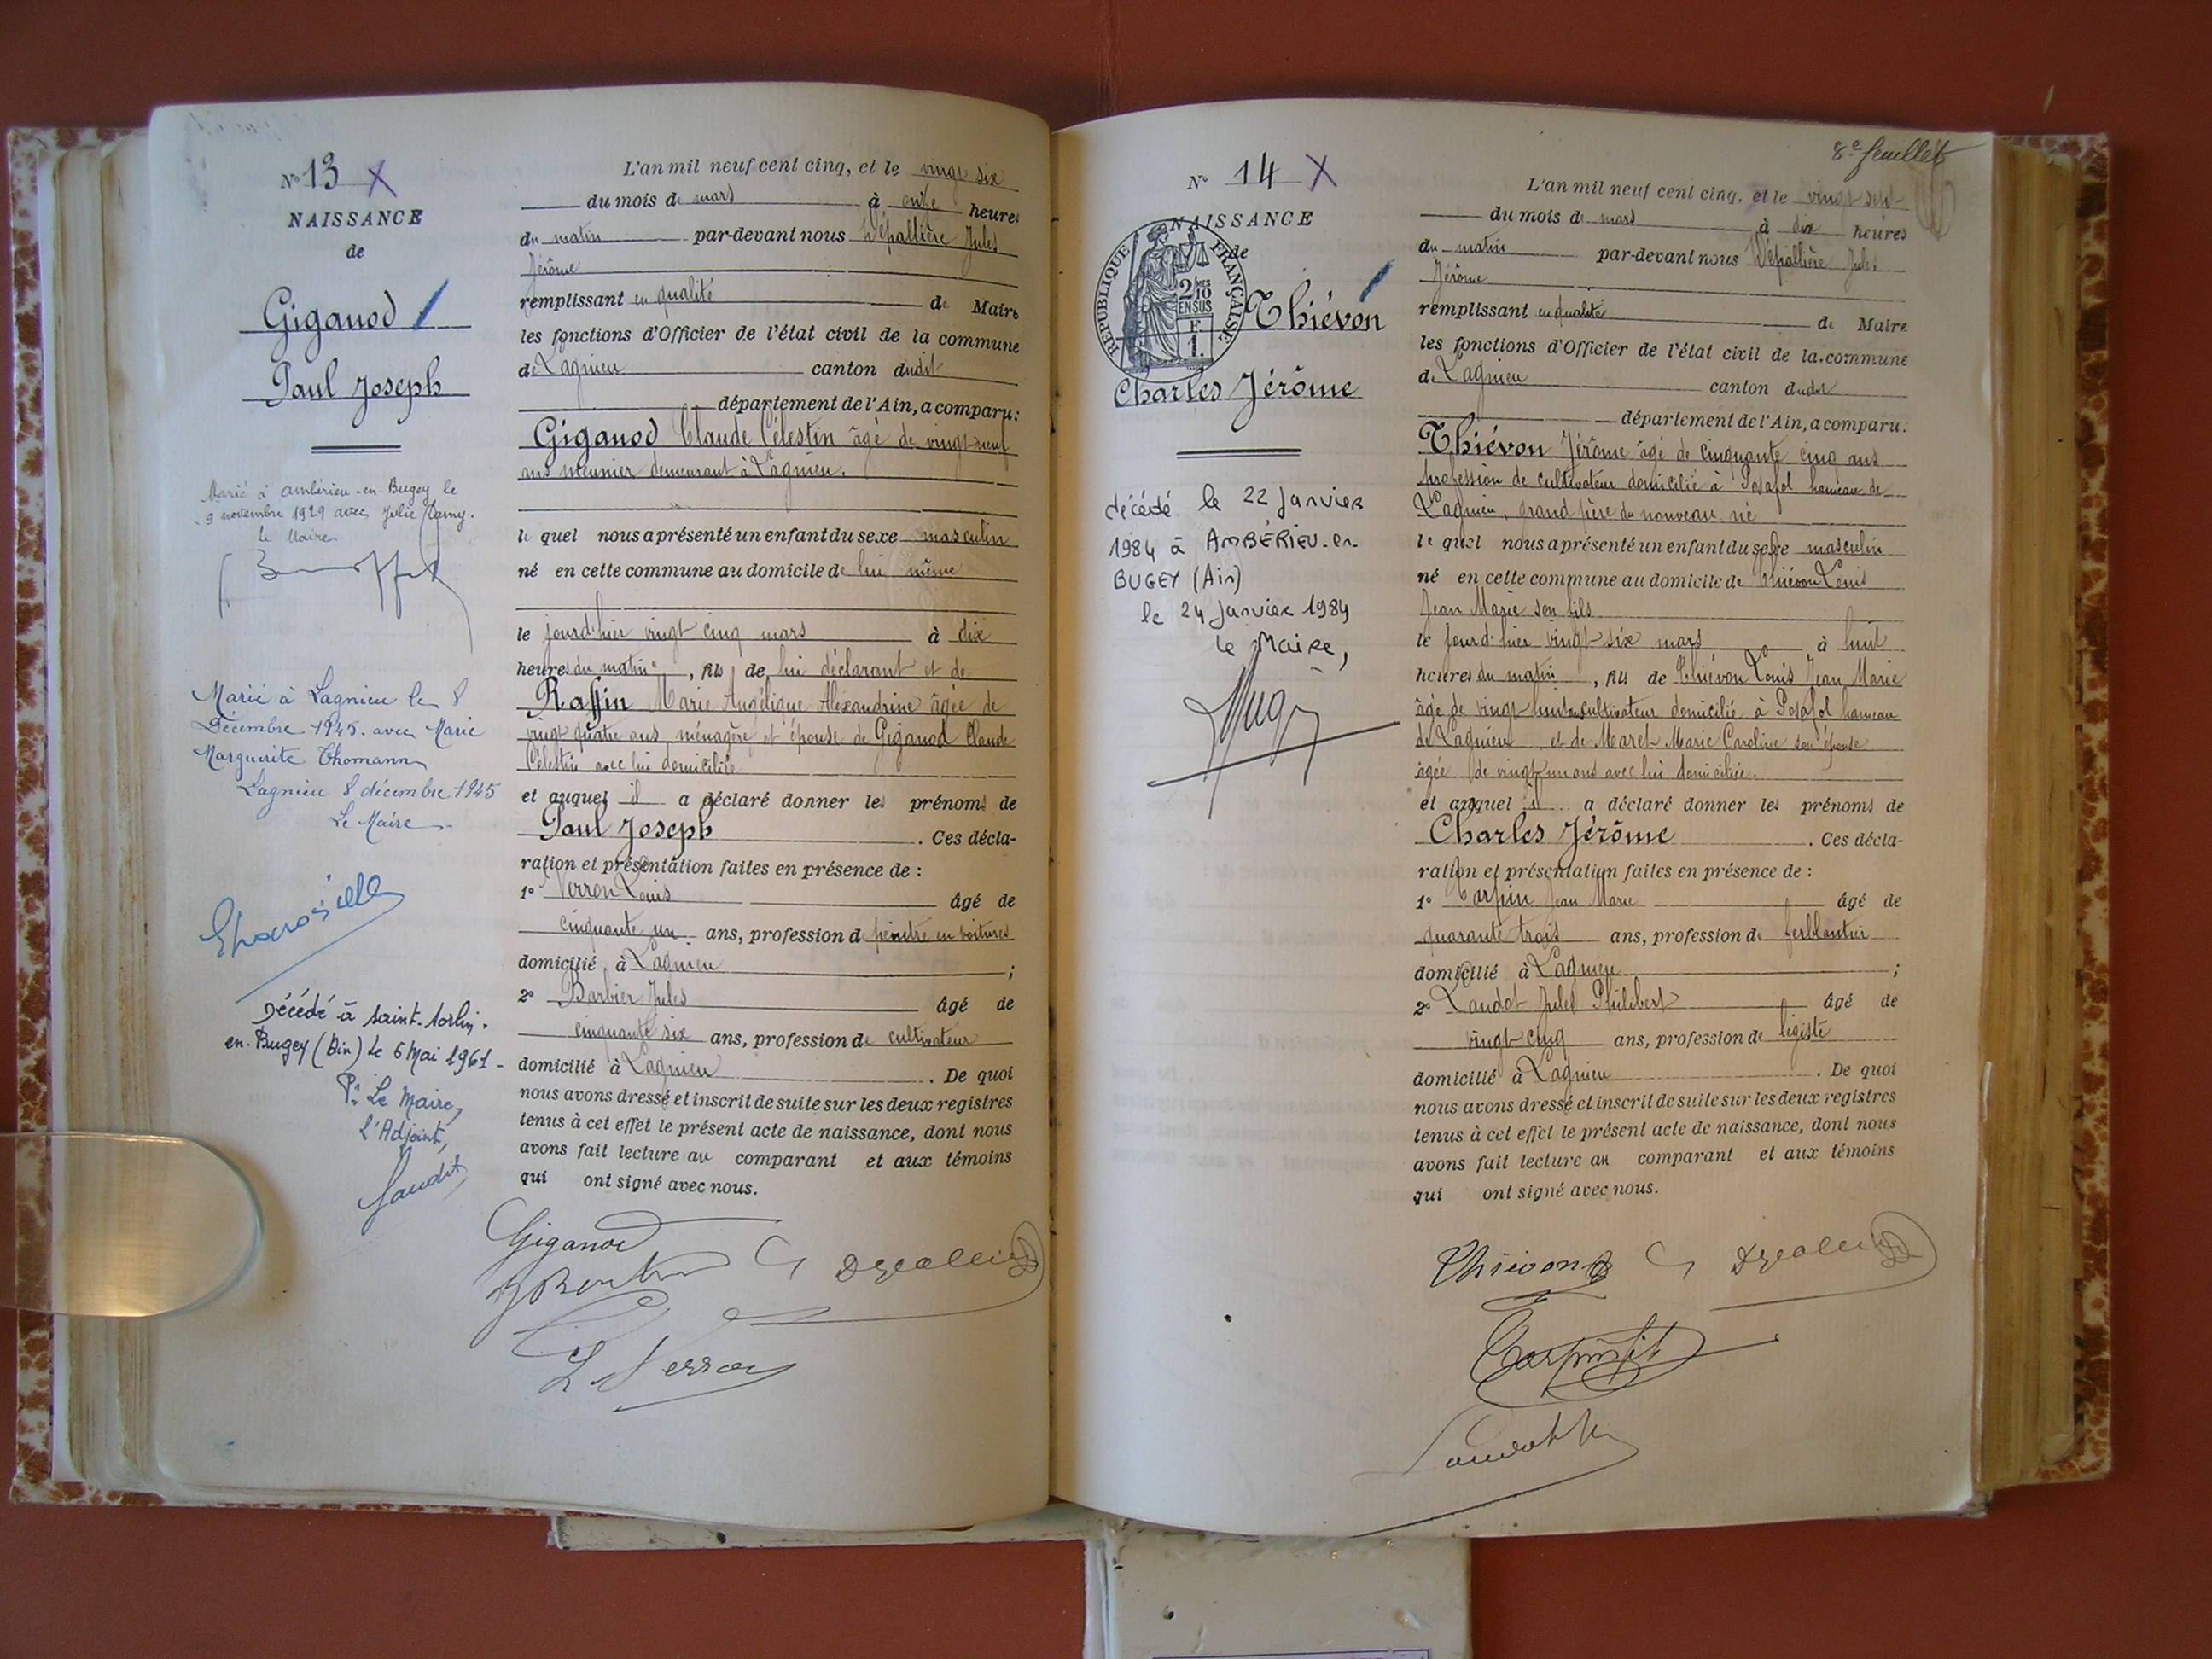 N° 13 X
NAISSANCE
de
Giganod
Paul Joseph
Marié à Ambérieu-en-Bugey le
9 novembre 1929 avec Julie
le Maire
Marié à Lagnieu le 8
Décembre 1945. avec Marie
Marguerite Thomann
Lagnieu 8 décembre 1945
Le Maire
Décédé à Saint-Sorlin-
en-Bugey (Ain) le 6 Mai 1961-
Pr. Le Maire,
L'Adjoint,
L'an mil neuf cent cinq, et le vingt six
du mois de mars à onze heures
du matin par-devant nous Dépallière Jules
Jérôme
remplissant en qualité de Maire
les fonctions d'Officier de l'état civil de la commune
de Lagnieu canton dudit
département de l'Ain, a comparu:
Giganod Claude Célestin âgé de vingt-neuf
ans meunier demeurant à Lagnieu.
le quel nous a présenté un enfant du sexe masculin
né en cette commune au domicile de lui même
le jourd'hier vingt cinq mars à dix
heures du matin, fils de lui déclarant et de
Raffin Marie Angélique Alexandrine âgée de
vingt quatre ans, ménagère et épouse de Giganod Claude
Célestin avec lui domiciliée
et auquel il a déclaré donner les prénoms de
Paul Joseph. Ces décla-
ration et présentation faites en présence de :
1° Verron Louis âgé de
cinquante un ans, profession de peintre en voitures
domicilié à Lagnieu ;
2° Barbier Jules âgé de
cinquante six ans, profession de cultivateur
domicilié à Lagnieu. De quoi
nous avons dressé et inscrit de suite sur les deux registres
tenus à cet effet le présent acte de naissance, dont nous
avons fait lecture au comparant et aux témoins
qui ont signé avec nous.
Giganod
L Verron
8e feuillet
N° 14 X
NAISSANCE
de
RÉPUBLIQUE FRANÇAISE
2 MES
10
EN SUS
F
1.
Thiévon
Charles Jérôme
décédé le 22 Janvier
1984 à AMBÉRIEU-en-
BUGEY (Ain)
le 24 Janvier 1984
le Maire,
L'an mil neuf cent cinq, et le vingt sept
du mois de mars à dix heures
du matin par-devant nous Dépallière Jules
Jérôme
remplissant en qualité de Maire
les fonctions d'Officier de l'état civil de la commune
de Lagnieu canton dudit
département de l'Ain, a comparu.
Thiévon Jérôme âgé de cinquante cinq ans
profession de cultivateur domicilié à Posafol hameau de
Lagnieu, grand père du nouveau né
le quel nous a présenté un enfant du sexe masculin
né en cette commune au domicile de Thiévon Louis
Jean Marie son fils
le jourd'hier vingt six mars à huit
heures du matin, fils de Thiévon Louis Jean Marie
âgé de vingt huit ans cultivateur domicilié à Posafol hameau
de Lagnieu et de Maret Marie Caroline son épouse
âgée de vingt un ans avec lui domiciliée.
et auquel il a déclaré donner les prénoms de
Charles Jérôme. Ces décla-
ration et présentation faites en présence de :
1° Carpin Jean Marie âgé de
quarante trois ans, profession de ferblantier
domicilié à Lagnieu ;
2° Laudot Jules Philibert âgé de
vingt cinq ans, profession de légiste
domicilié à Lagnieu. De quoi
nous avons dressé et inscrit de suite sur les deux registres
tenus à cet effet le présent acte de naissance, dont nous
avons fait lecture au comparant et aux témoins
qui ont signé avec nous.
Thievon